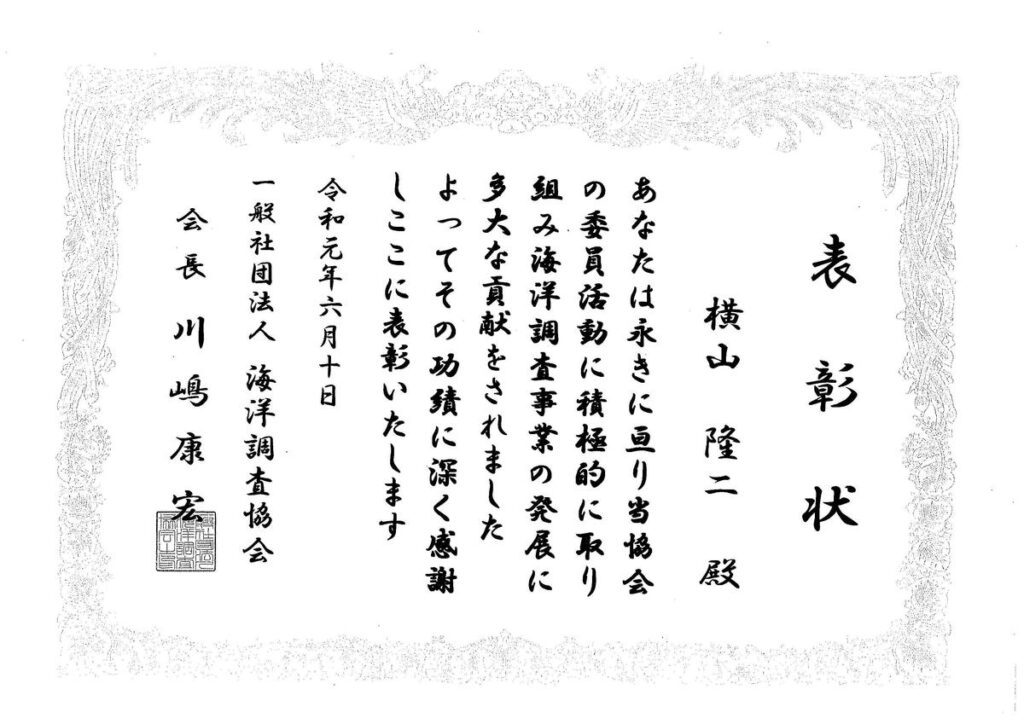 表彰状
横山 隆二 殿
あなたは永きに亘り当協会
の委員活動に積極的に取り
組み海洋調査事業の発展に
多大な貢献をされました
よってその功績に深く感謝
しここに表彰いたします
令和元年六月十日
一般社団法人 海洋調査協会
会長 川嶋康宏